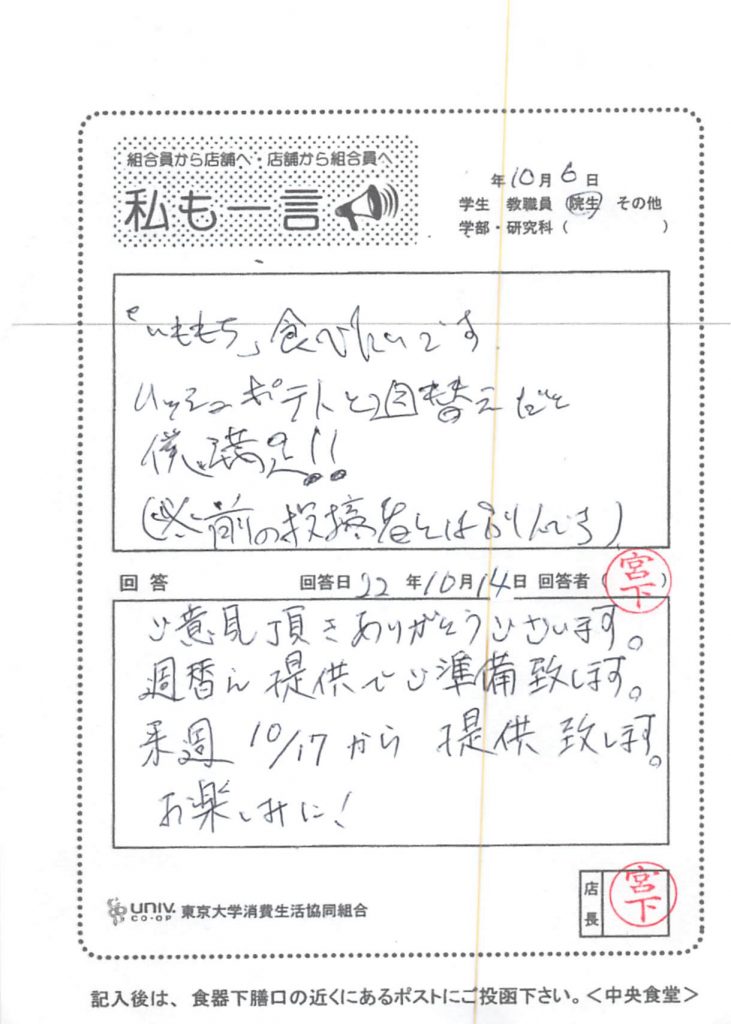 組合員から店舗へ・店舗から組合員へ
私も一言
年10月6日
学生 教職員 院生 その他
学部・研究科( )
「いももち」食べたいです
ハッシュポテトと週替えだと
僕満足!!
(※前の投稿者とはぶんです)
回答 回答日22年10月14日 回答者(宮下)
ご意見頂きありがとうございます。
週替え提供でご準備致します。
来週10/17から提供致します。
お楽しみに!
店長 宮下
UNIV. CO-OP 東京大学消費生活協同組合
記入後は、食器下膳口の近くにあるポストにご投函下さい。<中央食堂>